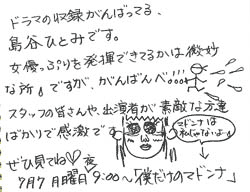 ドラマの収録がんばってる、
島谷ひとみです。
女優っぷりを発揮できてるかは微妙
な所♪ですが、がんばんべ!!!
スタッフの皆さんや、出演者が素敵な方達
ばかりで感激です
マドンナは
私じゃないよ
ぜひ見てね♡ 夜
7月7 月曜日 9:00～「僕だけのマドンナ」